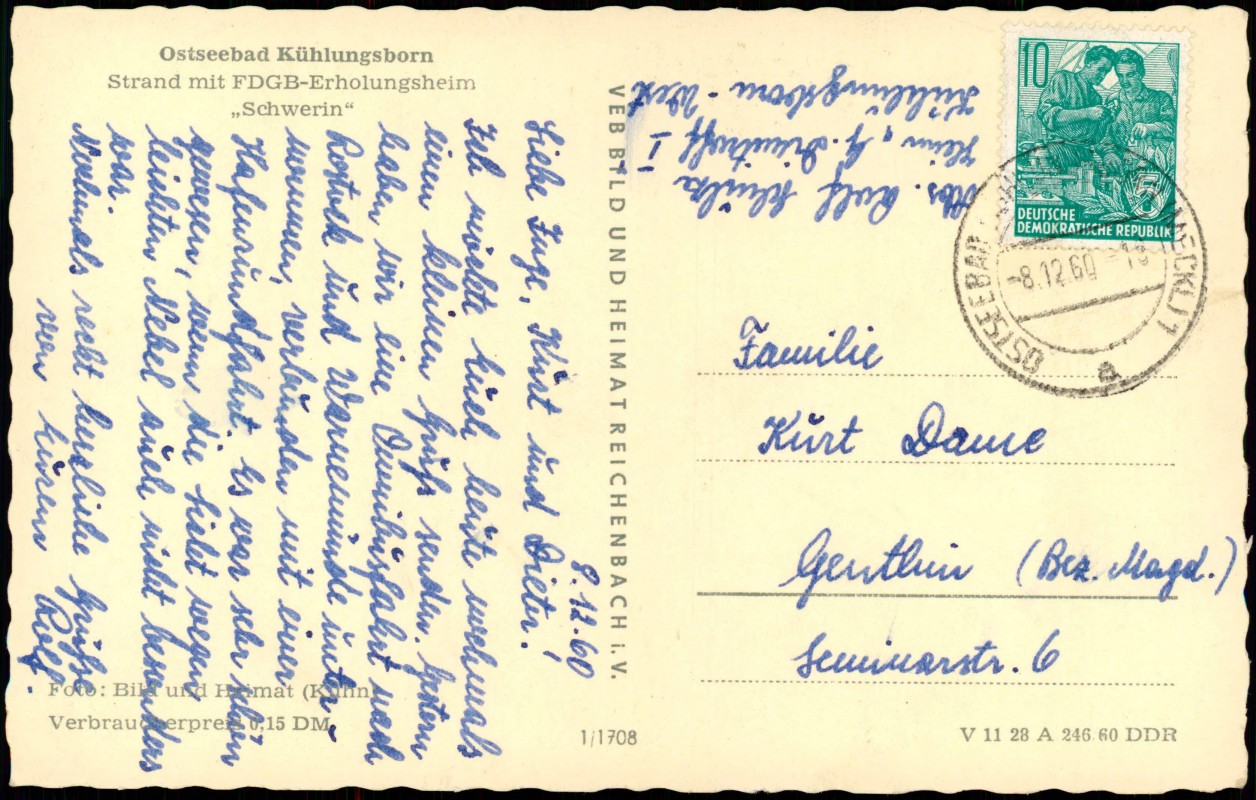 Ostseebad Kühlungsborn
Strand mit FDGB-Erholungsheim
„Schwerin“
8.12.60
Liebe Inge, Kurt und Dieter!
Ich möchte Euch heute nochmals
einen kleinen Gruß senden. Gestern
haben wir eine Omnibusfahrt nach
Rostock und Warnemünde unter-
nommen, verbunden mit einer
Hafenrundfahrt. Es war sehr schön
gewesen, wenn die Sicht wegen
leichten Nebel auch nicht besonders
war.
Nochmals recht herzliche Grüße
von Euren Rolf.
Foto: Bild und Heimat (Kühn)
Verbraucherpreis 0,15 DM
VEB BILD UND HEIMAT REICHENBACH i. V.
1/1708
Abs. Rolf
Heim „G. Dimitroff“ I
Kühlungsborn-West
10
5
DEUTSCHE
DEMOKRATISCHE REPUBLIK
OSTSEEBAD (MECKL) 1
-8.12.60-18
a
Familie
Kurt Dame
Genthin (Bez. Magd.)
Seminarstr. 6
V 11 28 A 246 60 DDR